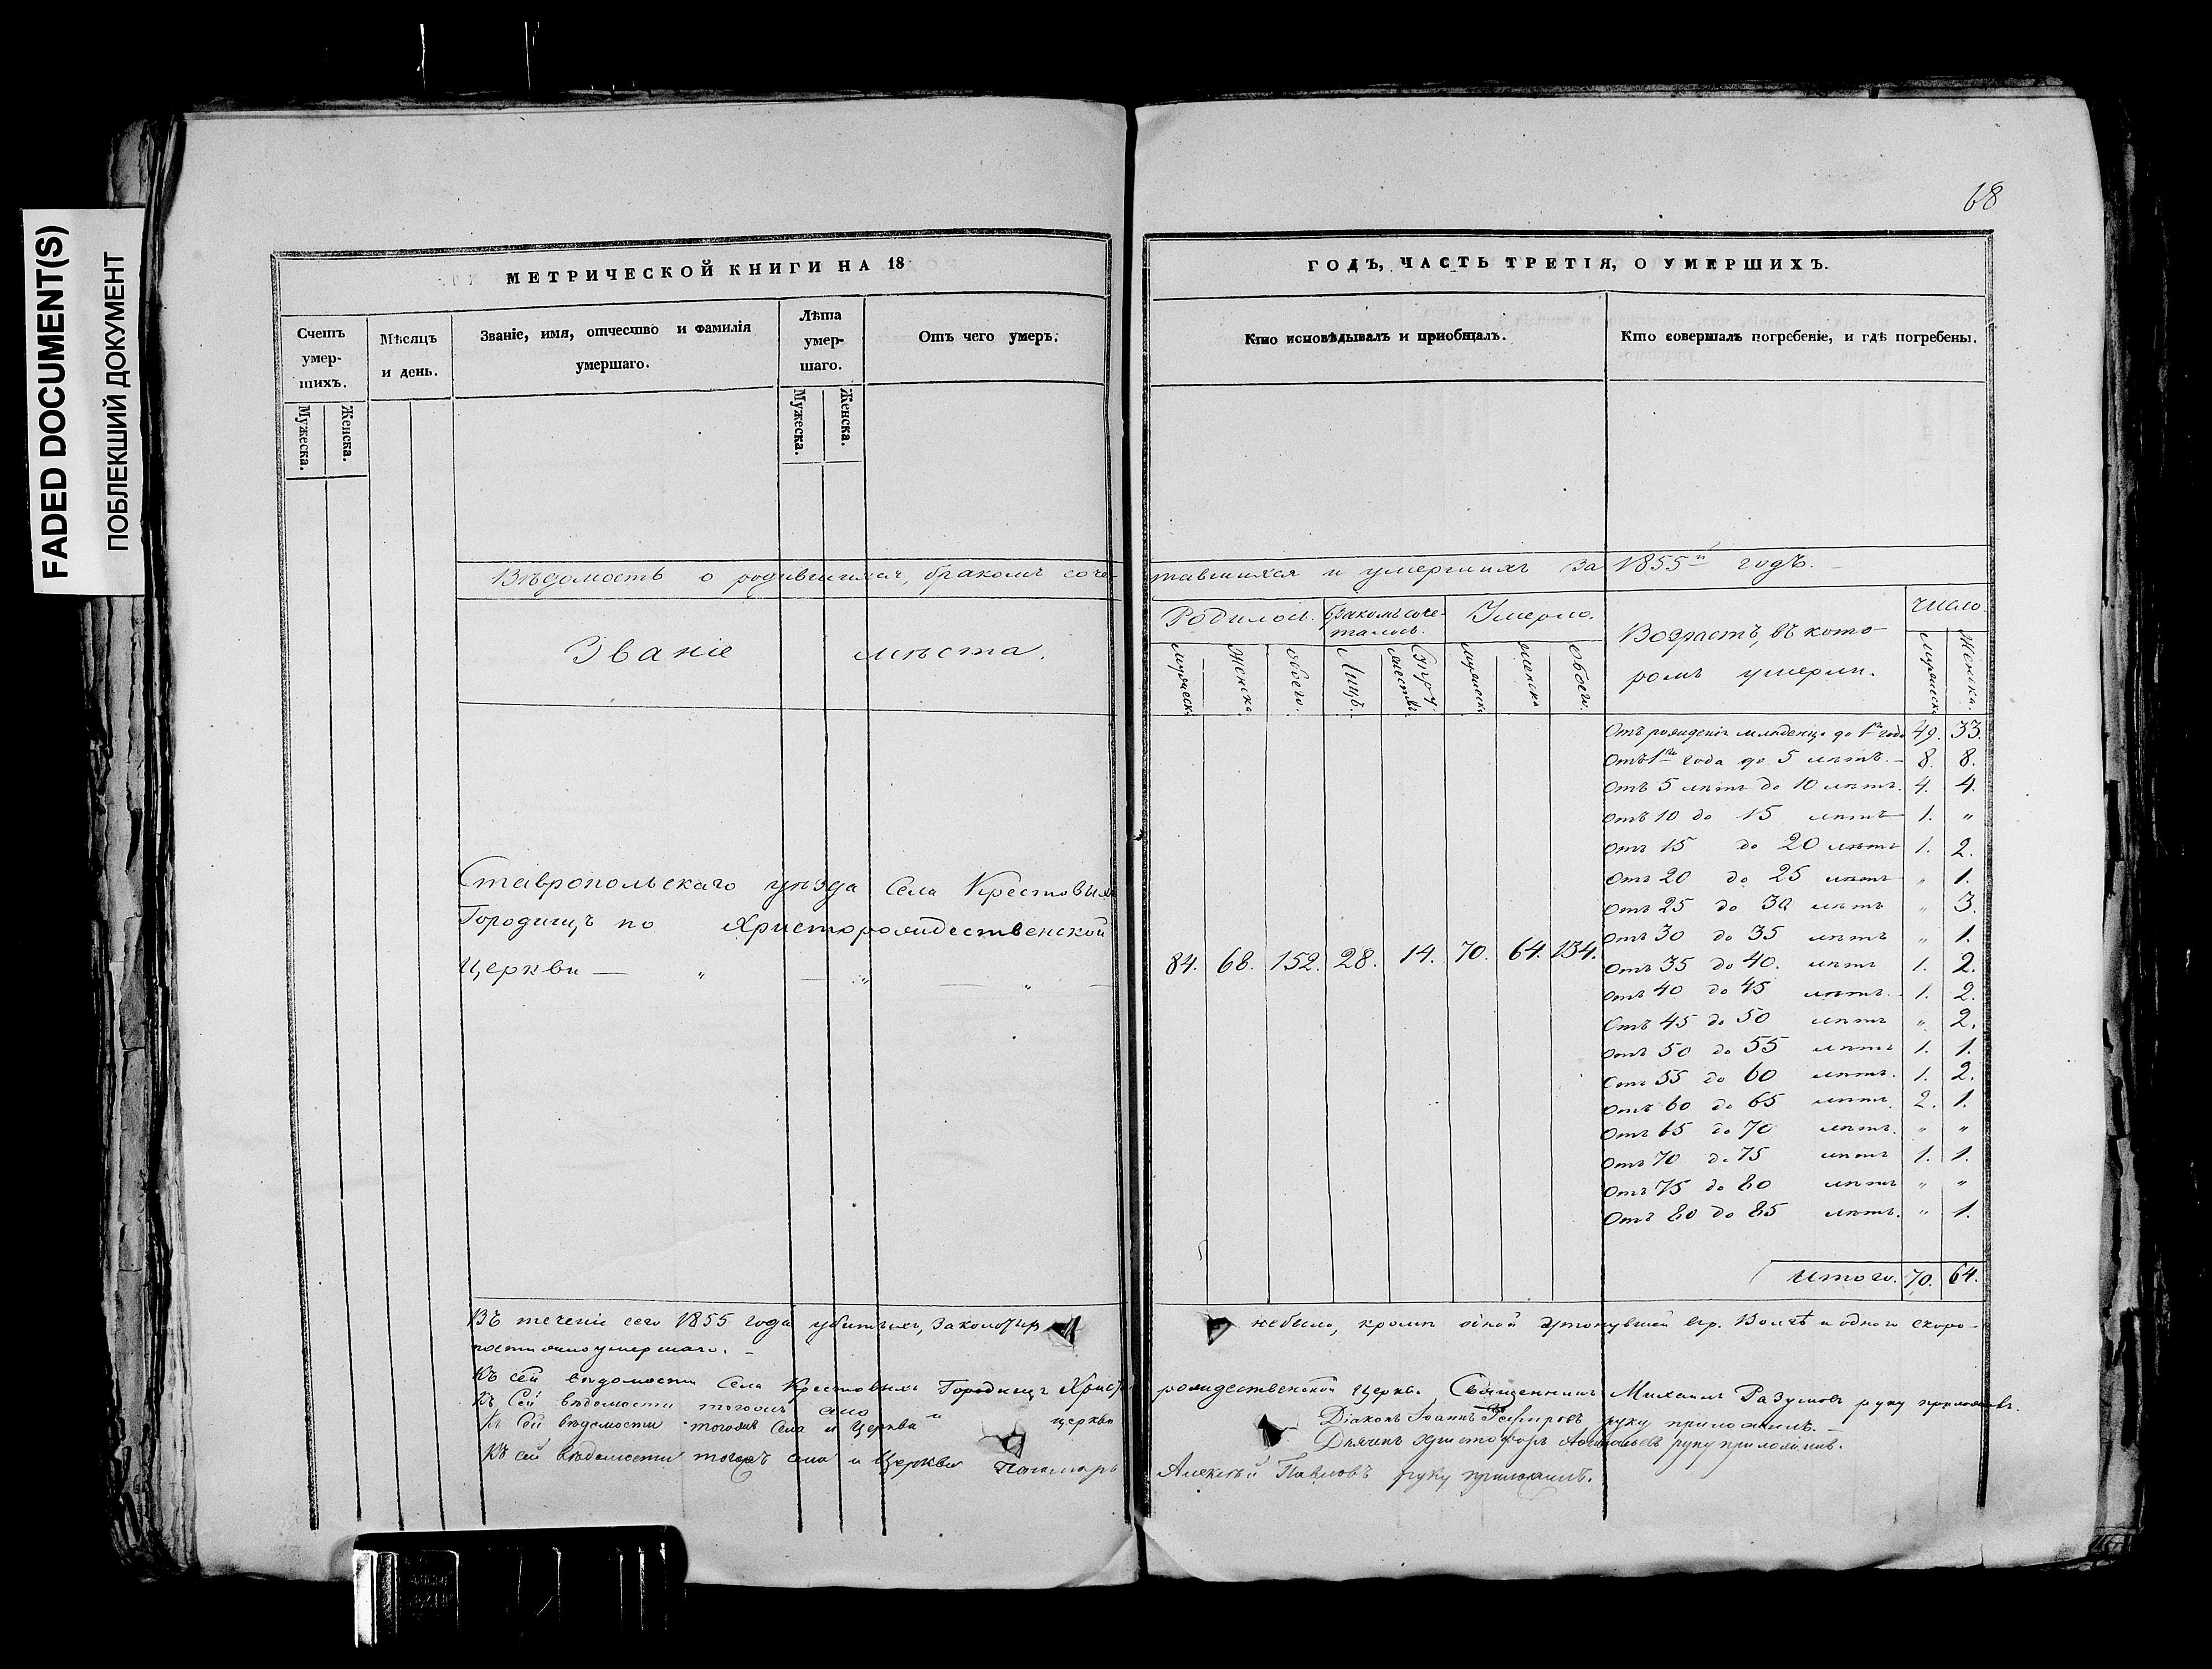 FADED DOCUMENT(S)
ПОБЛЕКШИЙ ДОКУМЕНТ
68
МЕТРИЧЕСКОЙ КНИГИ НА 18
ГОДЪ, ЧАСТЬ ТРЕТІЯ, О УМЕРШИХЪ.
Счетъ умер-шихъ.
Мужеска.
Женска.
Мѣсяцъ и день.
Званіе, имя, отчество и фамилія умершаго.
Лѣта умер-шаго.
Мужеска.
Женска.
Отъ чего умеръ.
Кто исповѣдывалъ и приобщалъ.
Кто совершалъ погребеніе, и гдѣ погребены.
Вѣдомость о родившихся, бракомъ соче-тавшихся и умершихъ за 1855й годъ.
Званіе мѣста.
Родилось.
Бракомъ соче-талось.
Умерло.
Возрастъ, въ кото-ромъ умерли.
Число
Мужеск.
Женска.
обоего.
Лицъ.
Супру-жествъ.
Мужеска
Женска
Обоего.
Мужеска
Женска.
Ставропольскаго уѣзда Села Крестовыхъ
Городищъ по Христорождественской
Церкви — „ — „ — „ —
84. 68. 152. 28. 14. 70. 64. 134.
Отъ рожденія младенца до 1го года 49. 33.
Отъ 1го года до 5 лѣтъ. 8. 8.
Отъ 5 лѣтъ до 10 лѣтъ. 4. 4.
Отъ 10 до 15 лѣтъ 1. „
Отъ 15 до 20 лѣтъ 1. 2.
Отъ 20 до 25 лѣтъ „ 1.
Отъ 25 до 30 лѣтъ „ 3.
Отъ 30 до 35 лѣтъ „ 1.
Отъ 35 до 40. лѣтъ 1. 2.
Отъ 40 до 45 лѣтъ. 1. 2.
Отъ 45 до 50 лѣтъ „ 2.
Отъ 50 до 55 лѣтъ 1. 1.
Отъ 55 до 60 лѣтъ. 1. 2.
Отъ 60 до 65 лѣтъ. 2. 1.
Отъ 65 до 70 лѣтъ. „ „
Отъ 70 до 75 лѣтъ 1. 1.
Отъ 75 до 80 лѣтъ „ „
Отъ 80 до 85 лѣтъ. „ 1.
Итого. 70. 64.
Въ теченіе сего 1855 года убитыхъ, небыло, кромѣ одной утонувшей въ р. Волгѣ и одного скоро-
постижно умершаго. —
Къ сей вѣдомости Села Крестовыхъ Городищъ Христорождественской Церкви Священникъ Михаилъ Разумовъ руку приложилъ.
Къ Сей вѣдомости тогожъ села и церкви Діаконъ Іоаннъ руку приложилъ. —
Къ Сей вѣдомости тогожъ Села и Церкви Дьячекъ Христофоръ руку приложилъ.
Къ сей вѣдомости тогожъ села и Церкви Пономарь Алексѣй Павловъ руку приложилъ.